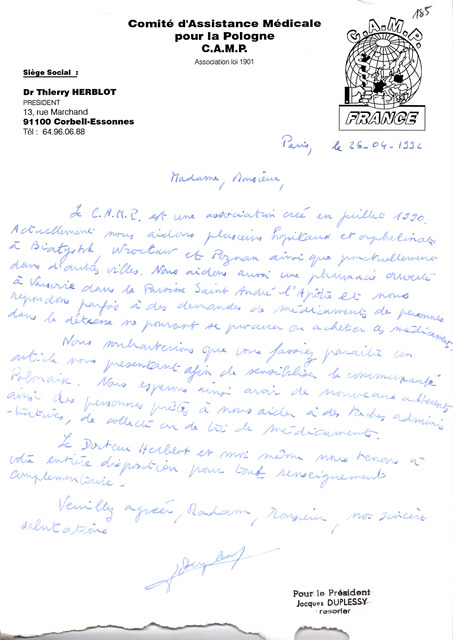 185
Comité d'Assistance Médicale
pour la Pologne
C.A.M.P.
Association loi 1901
C.A.M.P.
FRANCE
Siège Social :
Dr Thierry HERBLOT
PRESIDENT
13, rue Marchand
91100 Corbeil-Essonnes
Tél : 64.96.06.88
Paris, le 26-04-1992
Madame, Monsieur,
Le C.A.M.P. est une association créé en juillet 1990.
Actuellement nous aidons plusieurs hôpitaux et orphelinats
à Białystok, Wrocław et Poznan ainsi que ponctuellement
dans d'autres villes. Nous aidons aussi une pharmacie ouverte
à Varsovie dans la Paroisse Saint André l'Apôtre et nous
repondons parfois à des demandes de médicaments de personnes
dans la détresse ne pouvant se procurer ou acheter ces médicaments.
Nous souhaiterions que vous fassiez paraître un
article nous présentant afin de sensibiliser la communauté
Polonaise. Nous esperons ainsi avoir de nouveaux adhérents
ainsi des personnes prêtes à nous aider à des taches adminis
-tratives, de collecte ou de tri de médicaments.
Le Docteur Herblot et moi même nous tenons à
votre entière disposition pour tout renseignement
complémentaire.
Veuillez agréer, Madame, Monsieur, nos sincères
salutations
Pour le Président
Jacques DUPLESSY